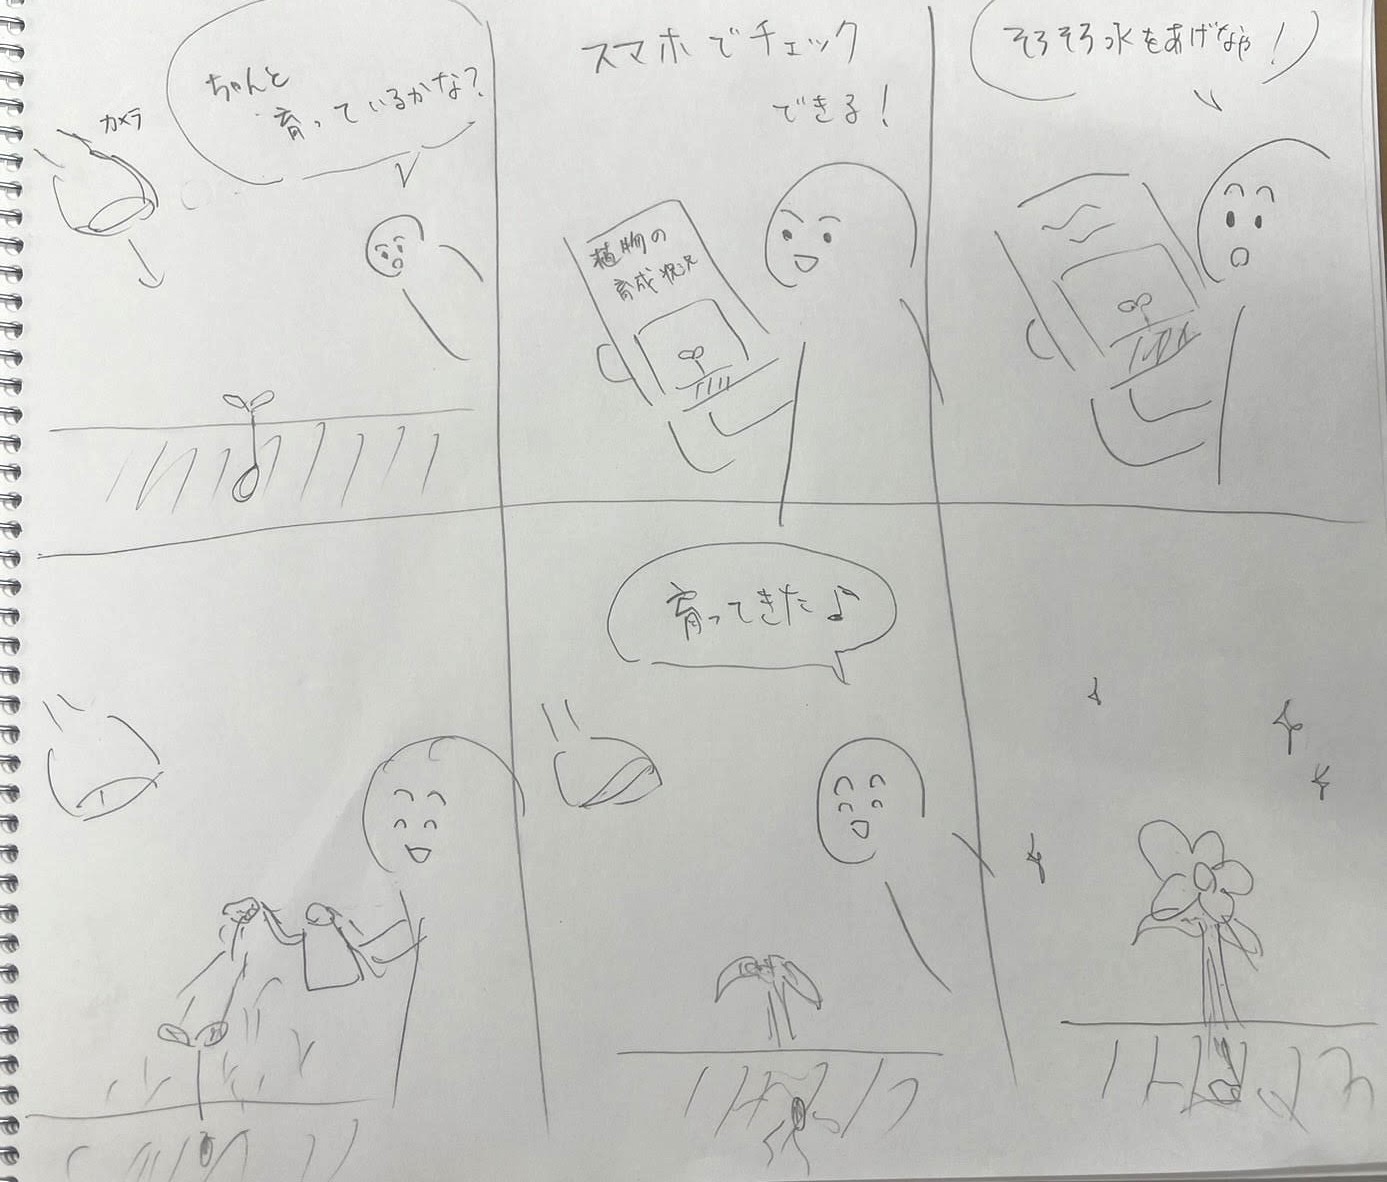 カメラ
ちゃんと
育っているかな?
スマホでチェック
できる!
植物の
育成状況
そろそろ水をあげなや!
育ってきた♪